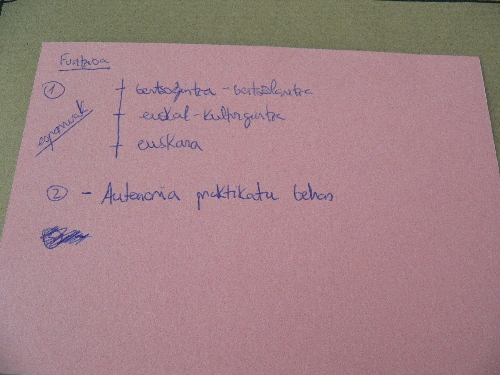 Funtzioa
1 bertsogintza - bertsolaritza
esparruak
euskal-kulturgintza
euskara
2 - Autonomia praktikatu behar